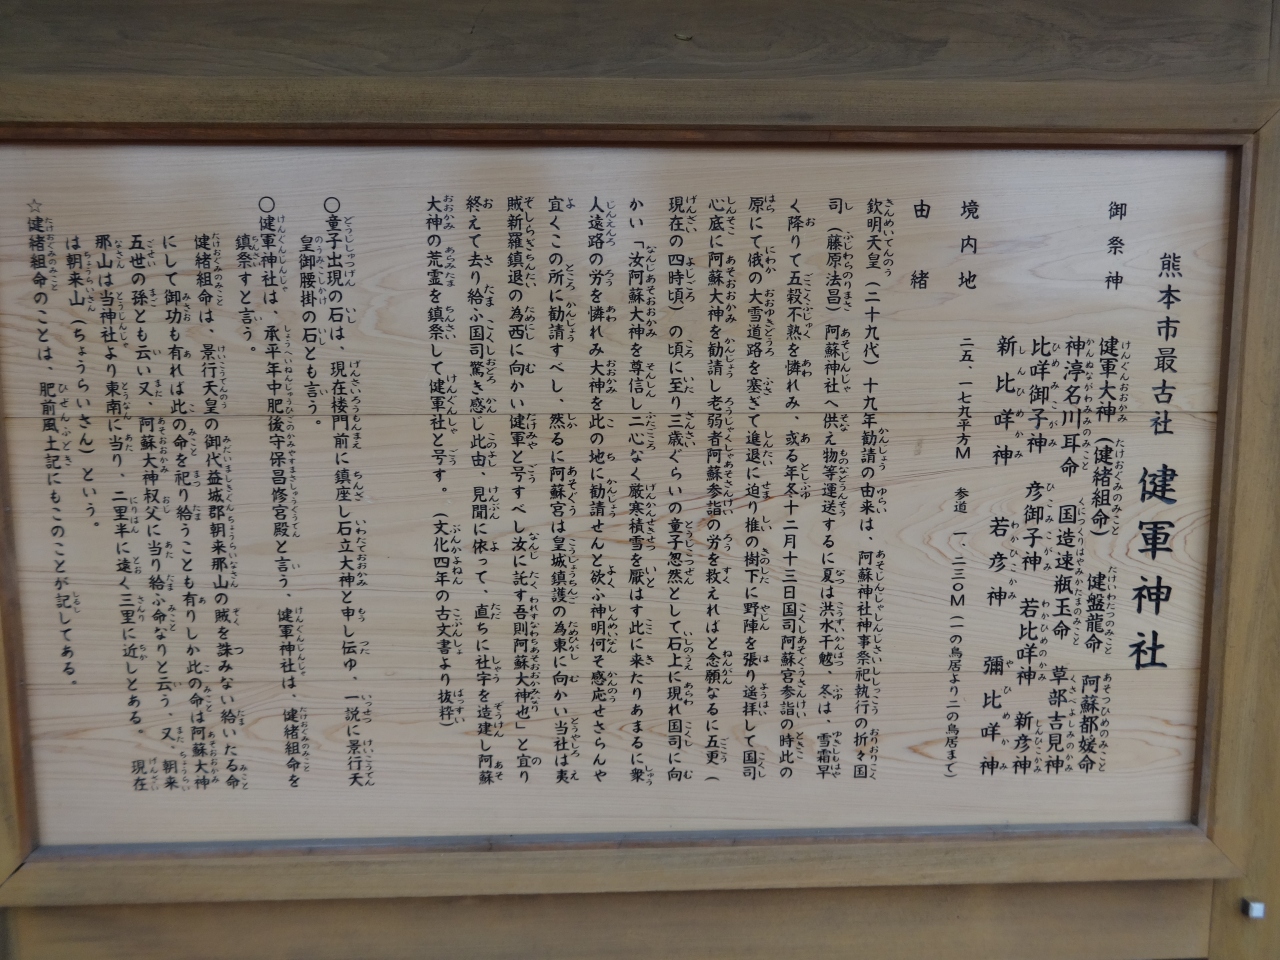 熊本市最古社 健軍神社
御祭神
健軍大神(健緒組命) 健盤龍命 阿蘇都媛命
神渟名川耳命 国造速瓶玉命 草部吉見神
比咩御子神 彦御子神 若比咩神 新彦神
新比咩神 若彦神 彌比咩神
境内地 二五、一七九平方M 参道 一、二三〇M(一の鳥居より二の鳥居まで)
由緒
欽明天皇(二十九代)十九年勧請の由来は、阿蘇神社神事祭祀執行の折々国
司(藤原法昌)阿蘇神社へ供え物等運送するに夏は洪水干魃、冬は、雪霜早
く降りて五穀不熟を憐れみ、或る年冬十二月十三日国司阿蘇宮参詣の時此の
原にて俄の大雪道路を塞ぎて進退に迫り椎の樹下に野陣を張り遥拝して国司
心底に阿蘇大神を勧請し老弱者阿蘇参詣の労を救えればと念願なるに五更(
現在の四時頃)の頃に至り三歳ぐらいの童子忽然として石上に現れ国司に向
かい「汝阿蘇大神を尊信し二心なく厳寒積雪を厭はす此に来たりあまるに衆
人遠路の労を憐れみ大神を此の地に勧請せんと欲ふ神明何そ感応せさらんや
宜くこの所に勧請すべし、然るに阿蘇宮は皇城鎮護の為東に向かい当社は夷
賊新羅鎮退の為西に向かい健軍と号すべし汝に託す吾則阿蘇大神也」と宜り
終えて去り給ふ国司驚き感じ此由、見聞に依って、直ちに社宇を造建し阿蘇
大神の荒霊を鎮祭して健軍社と号す。(文化四年の古文書より抜粋)
〇童子出現の石は、現在楼門前に鎮座し石立大神と申し伝ゆ、一説に景行天
皇御腰掛の石とも言う。
〇健軍神社は、承平年中肥後守保昌修宮殿と言う、健軍神社は、健緒組命を
鎮祭すと言う。
健緒組命は、景行天皇の御代益城郡朝来那山の賊を誅みない給いたる命
にして御功も有れば此の命を祀り給うことも有りしか此の命は阿蘇大神
五世の孫とも云い又、阿蘇大神叔父に当り給ふ命なりと云う、又、朝来
那山は当神社より東南に当り、二里半に遠く三里に近しとある。現在
は朝来山(ちょうらいさん)という。
☆健緒組命のことは、肥前風土記にもこのことが記してある。